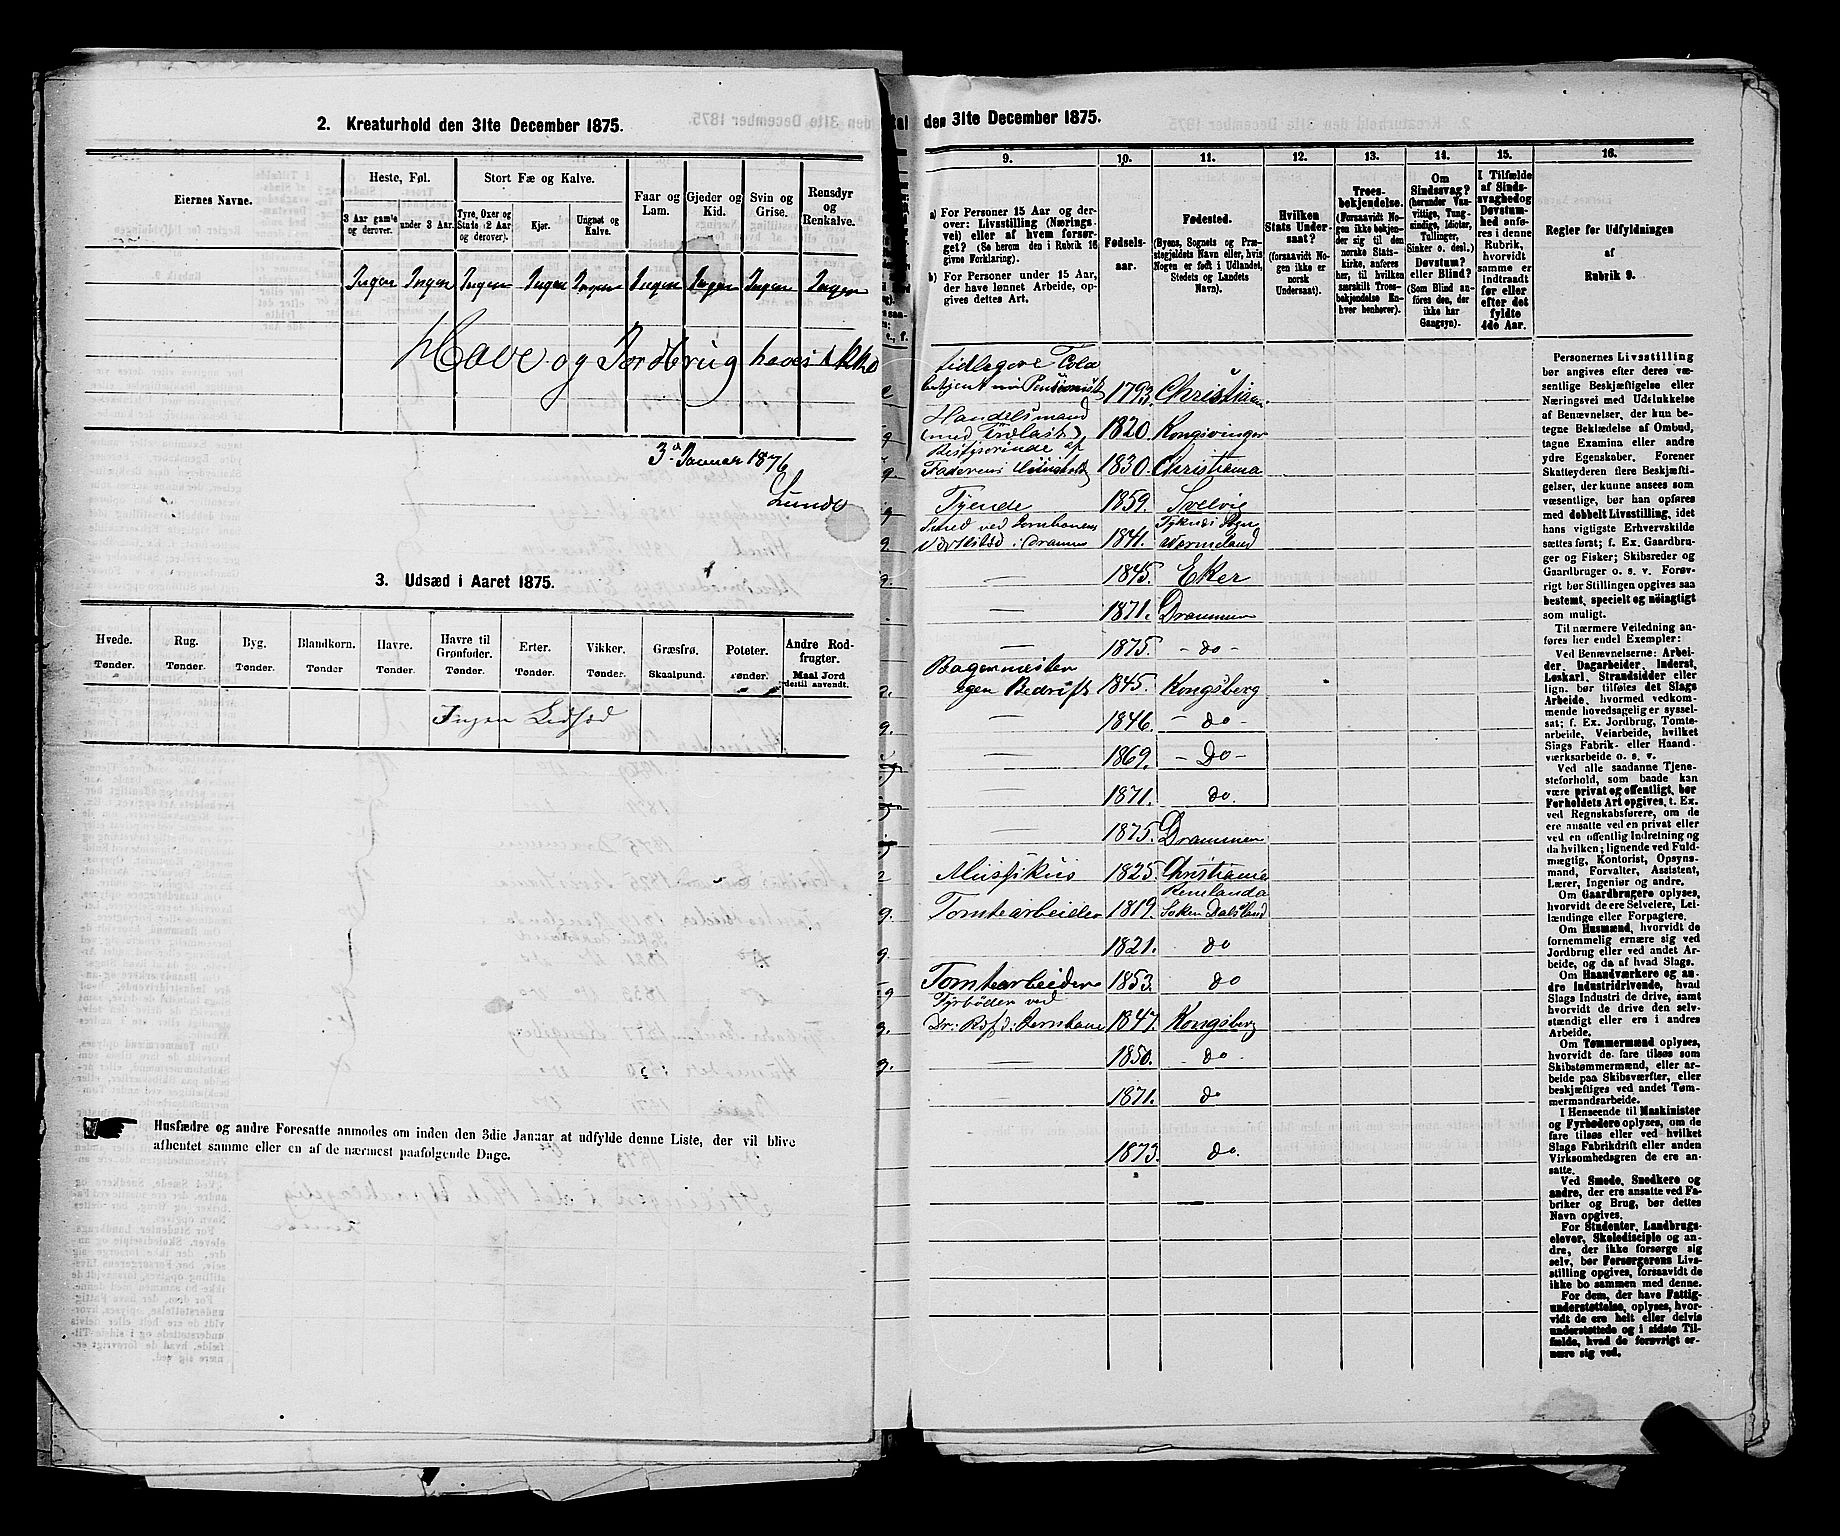 2. Kreaturhold den 31te December 1875.
Eiernes Navne.
Heste, Føl.
Stort Fæ og Kalve.
Faar og Lam.
Gjeder og Kid.
Svin og Grise.
Rensdyr og Renkalve.
3 Aar gamle og derover.
under 3 Aar.
Tyre, Oxer og Stude (2 Aar og derover).
Kjør.
Ungnøt og Kalve.
Ingen Ingen Ingen Ingen Ingen Ingen Ingen Ingen Ingen
Have og Jordbrug haves ikke
3 Januar 1876
Lunde
3. Udsæd i Aaret 1875.
Hvede. Tønder.
Rug. Tønder.
Byg. Tønder.
Blandkorn. Tønder
Havre. Tønder.
Havre til Grønfoder. Tønder.
Erter. Tønder.
Vikker. Tønder.
Græsfrø. Skaalpund.
Poteter. Tønder.
Andre Rodfrugter. Maal Jord dertil anvendt.
Ingen Udsæd
Husfædre og andre Foresatte anmodes om inden den 3die Januar at udfylde denne Liste, der vil blive
afhentet samme eller en af de nærmest paafølgende Dage.
tal den 31te December 1875.
9. 10. 11. 12. 13. 14. 15. 16.
a) For Personer 15 Aar og derover: Livsstilling (Næringsvei) eller af hvem forsørget? (Se herom den i Rubrik 16 givne Forklaring).
b) For Personer under 15 Aar, der have lønnet Arbeide, opgives dettes Art.
Fødselsaar.
Fødested.
(Byens, Sognets og Præstegjeldets Navn eller, hvis Nogen er født i Udlandet, Stedets og Landets Navn).
Hvilken Stats Undersaat?
(forsaavidt Nogen ikke er norsk Undersaat).
Troesbekjendelse.
(Forsaavidt Nogen ikke bekjender sig til den norske Statskirke, anføres her, til hvilken særskilt Troesbekjendelse Enhver henhører).
Om Sindssvag?
(herunder Vanvittige, Tungsindige, Idioter, Tullinger, Sinker o. desl.)
Døvstum? eller Blind?
(Som Blind anføres den, der ikke har Gangsyn).
I Tilfælde af Sindssvaghed og Døvstumhed anføres i denne Rubrik, hvorvidt samme er indtraadt før eller efter det fyldte 4de Aar.
Regler for Udfyldningen af Rubrik 9.
tidligere
betjent nu Pensionist 1793. Christian
Handelsmand
(med 1820. Kongsvinger
Bestyrerinde af
Faderens 1830. Christiania
Tyende 1859. Svelvig
Smed ved Jernbanens
Værksted i Drammen 1841. Wermeland
— 1845. Eker
— 1871. Drammen
— 1875. - do -
Bagermester
egen Bedrift 1845. Kongsberg
— 1846. - do -
— 1869. - Do -
— 1871. do.
— 1875. Drammen
Mussikus 1825. Christiania
Tomtearbeider 1819. Dalsland
1821. do
Tomtearbeider 1853. do
Fyrbøder ved
Jernbane 1847. Kongsberg
— 1850. - do -
— 1871. do
1873. do.
Personernes Livsstilling
bør angives efter deres væsentlige
Beskjæftigelse eller
Næringsvei med Udelukkelse
af Benævnelser, der kun betegne
Beklædelse af Ombud,
tagne Examina eller andre
ydre Egenskaber. Forener
Skatteyderen flere Beskjæftigelser,
der kunne ansees som
væsentlige, bør han opføres
med dobbelt Livsstilling, idet
hans vigtigste Erhvervskilde
sættes først; f. Ex. Gaardbruger
og Fisker; Skibsreder og
Gaardbruger o. s. v. Forøvrigt
bør Stillingen opgives saa
bestemt, specielt og nøiagtigt
som muligt.
Til nærmere Veiledning anføres
her endel Exempler:
Ved Benævnelserne: Arbeider,
Dagarbeider, Inderst,
Løskarl, Strandsidder eller
lign. bør tilføies det Slags
Arbeide, hvormed vedkommende
hovedsagelig er sysselsat;
f. Ex. Jordbrug, Tomtearbeide,
Veiarbeide, hvilket
Slags Fabrik- eller Haandværksarbeide
o. s. v.
Ved alle saadanne Tjenesteforhold,
som baade kan
være privat og offentligt, bør
Forholdets Art opgives, t. Ex.
ved Regnskabsførere, om de
ere ansatte ved en privat eller
ved en offentlig Indretning og
da hvilken; lignende ved Fuldmægtig,
Kontorist, Opsynsmand,
Forvalter, Assistent,
Lærer, Ingeniør og andre.
Om Gaardbrugere oplyses,
hvorvidt de ere Selveiere, Leilændinge
eller Forpagtere.
Om Husmænd, hvorvidt de
fornemmelig ernære sig ved
Jordbrug eller ved andet Arbeide,
og da af hvad Slags.
Om Haandværkere og andre
Industridrivende, hvad
Slags Industri de drive, samt
hvorvidt de drive den selvstændigt
eller ere i andres
Arbeide.
Om Tømmermænd oplyses,
hvorvidt de fare tilsøs som
Skibstømmermænd, eller arbeide
paa Skibsværfter, eller
beskjæftiges ved andet Tømmermandsarbeide.
I Henseende til Maskinister
og Fyrbødere oplyses, om de
fare tilsøs eller ved hvilket
Slags Fabrikdrift eller anden
Virksomhedsgren de ere ansatte.
Ved Smede, Snedkere og
andre, der ere ansatte ved Fabriker
og Brug, bør dettes
Navn opgives.
For Studenter, Landbrugselever,
Skoledisciple og andre,
der ikke forsørge sig
selv, bør Forsørgerens Livsstilling
opgives, forsaavidt de
ikke bo sammen med denne.
For dem, der have Fattigunderstøttelse,
oplyses, hvorvidt
de ere helt eller delvis
understøttede og i sidste Tilfælde,
hvad de forøvrigt ernære
sig ved.